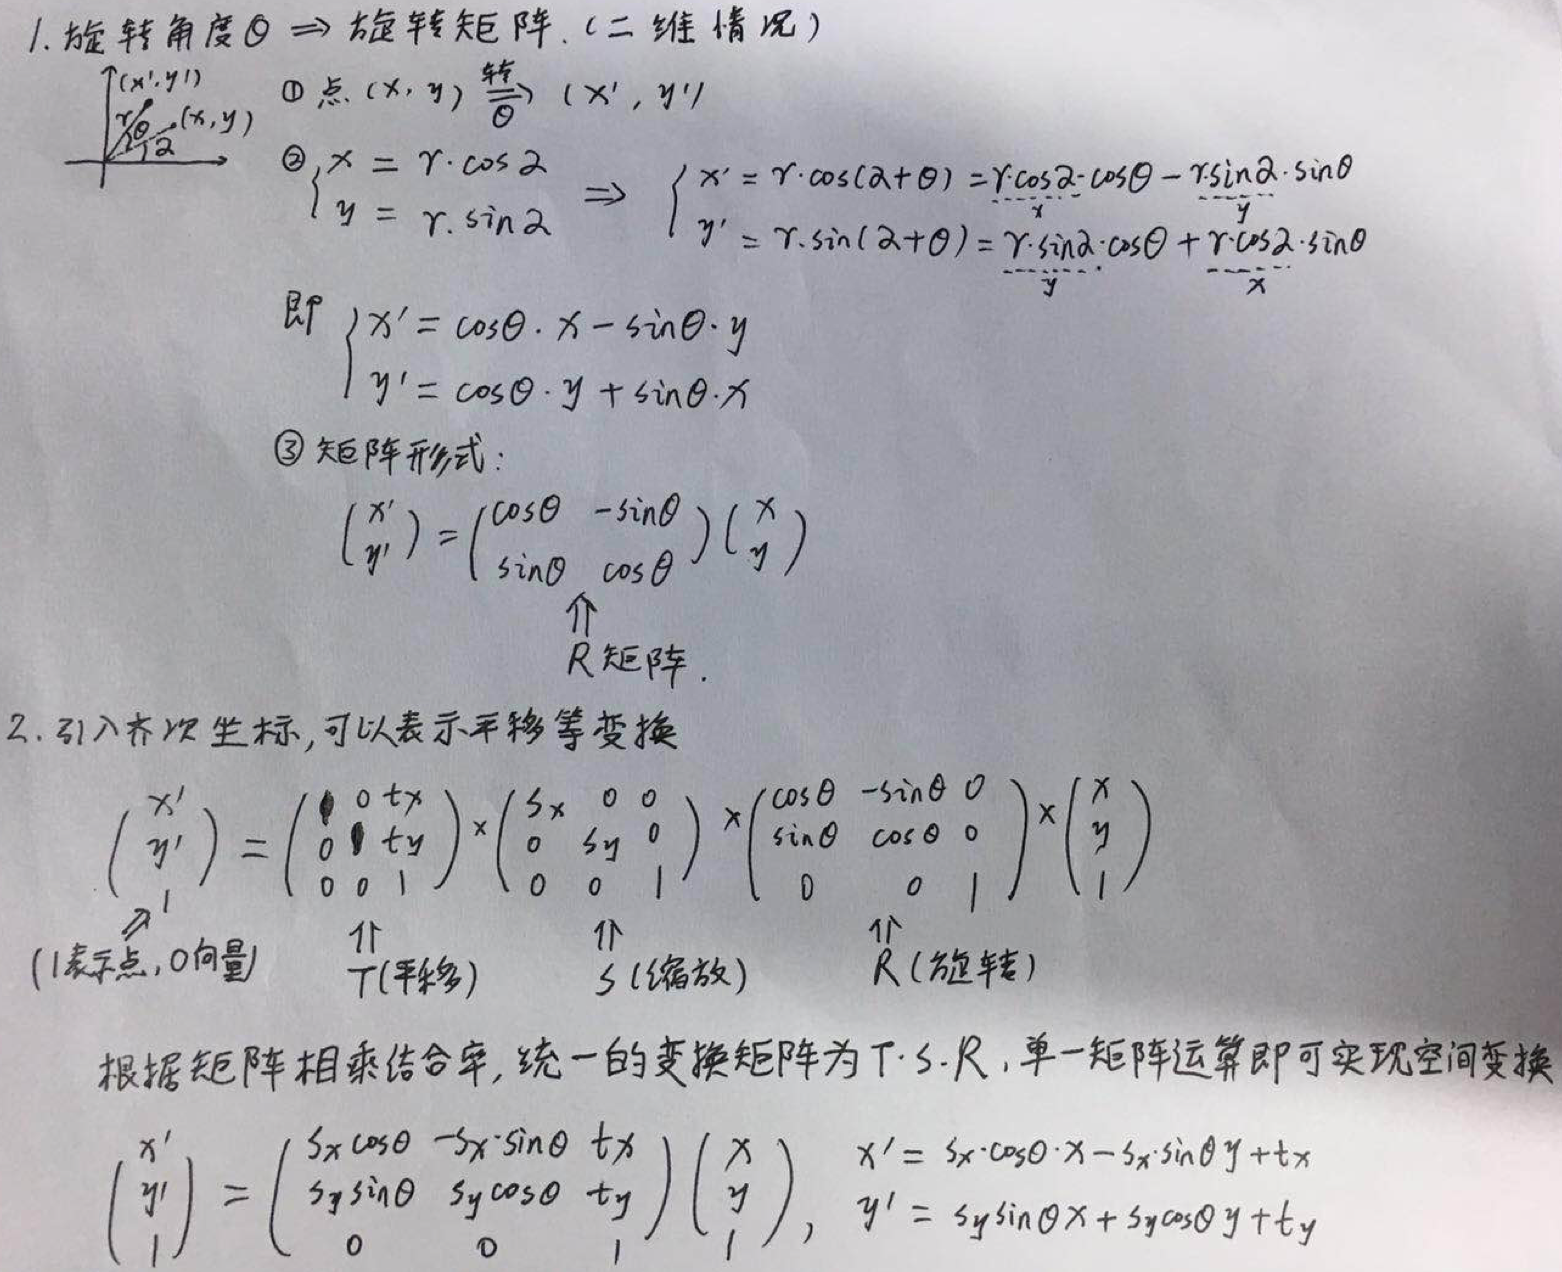 1. 旋转角度θ ⇒ 旋转矩阵.（二维情况）
(x',y')
r θ (x,y)
α
① 点 (x, y) 转⇒θ (x', y')
② { x = r·cosα ⇒ { x' = r·cos(α+θ) = r·cosα·cosθ − r·sinα·sinθ
x y
y = r·sinα y' = r·sin(α+θ) = r·sinα·cosθ + r·cosα·sinθ
y x
即 { x' = cosθ·x − sinθ·y
y' = cosθ·y + sinθ·x
③ 矩阵形式:
(x' y') = (cosθ −sinθ sinθ cosθ)(x y)
⇑
R矩阵.
2. 引入齐次坐标,可以表示平移等变换
(x' y' 1) = (1 0 tx 0 1 ty 0 0 1) × (Sx 0 0 0 Sy 0 0 0 1) × (cosθ −sinθ 0 sinθ cosθ 0 0 0 1) × (x y 1)
⇗ ⇑ ⇑ ⇑
(1表示点,0向量) T(平移) S(缩放) R(旋转)
根据矩阵相乘结合率,统一的变换矩阵为T·S·R,单一矩阵运算即可实现空间变换
(x' y' 1) = (Sx cosθ −Sx·sinθ tx Sy sinθ Sy cosθ ty 0 0 1)(x y 1), x' = Sx·cosθ·x − Sx·sinθ y + tx
y' = Sy sinθ x + Sy cosθ y + ty